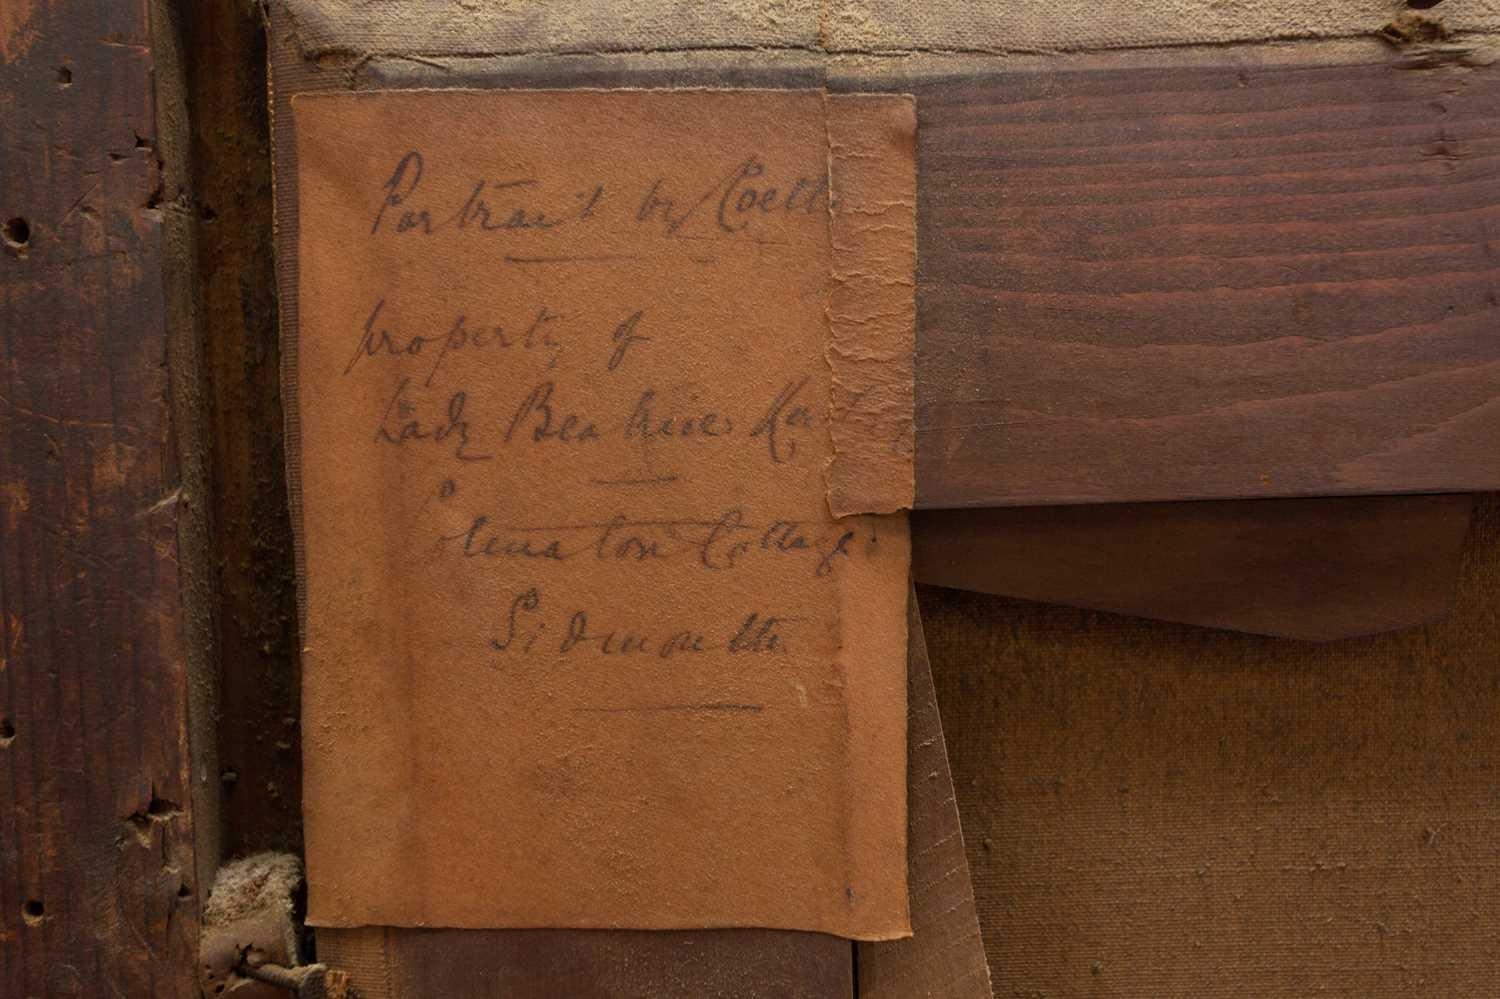 Portrait by Coell
property of
Lady Beatrice
Cottage
Sidmouth